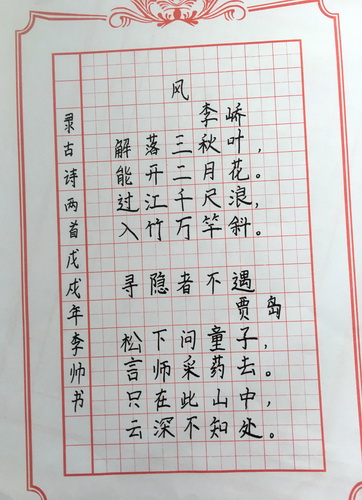 风
李峤
解落三秋叶，
能开二月花。
过江千尺浪，
入竹万竿斜。
寻隐者不遇
贾岛
松下问童子，
言师采药去。
只在此山中，
云深不知处。
录古诗两首戊戌年李帅书